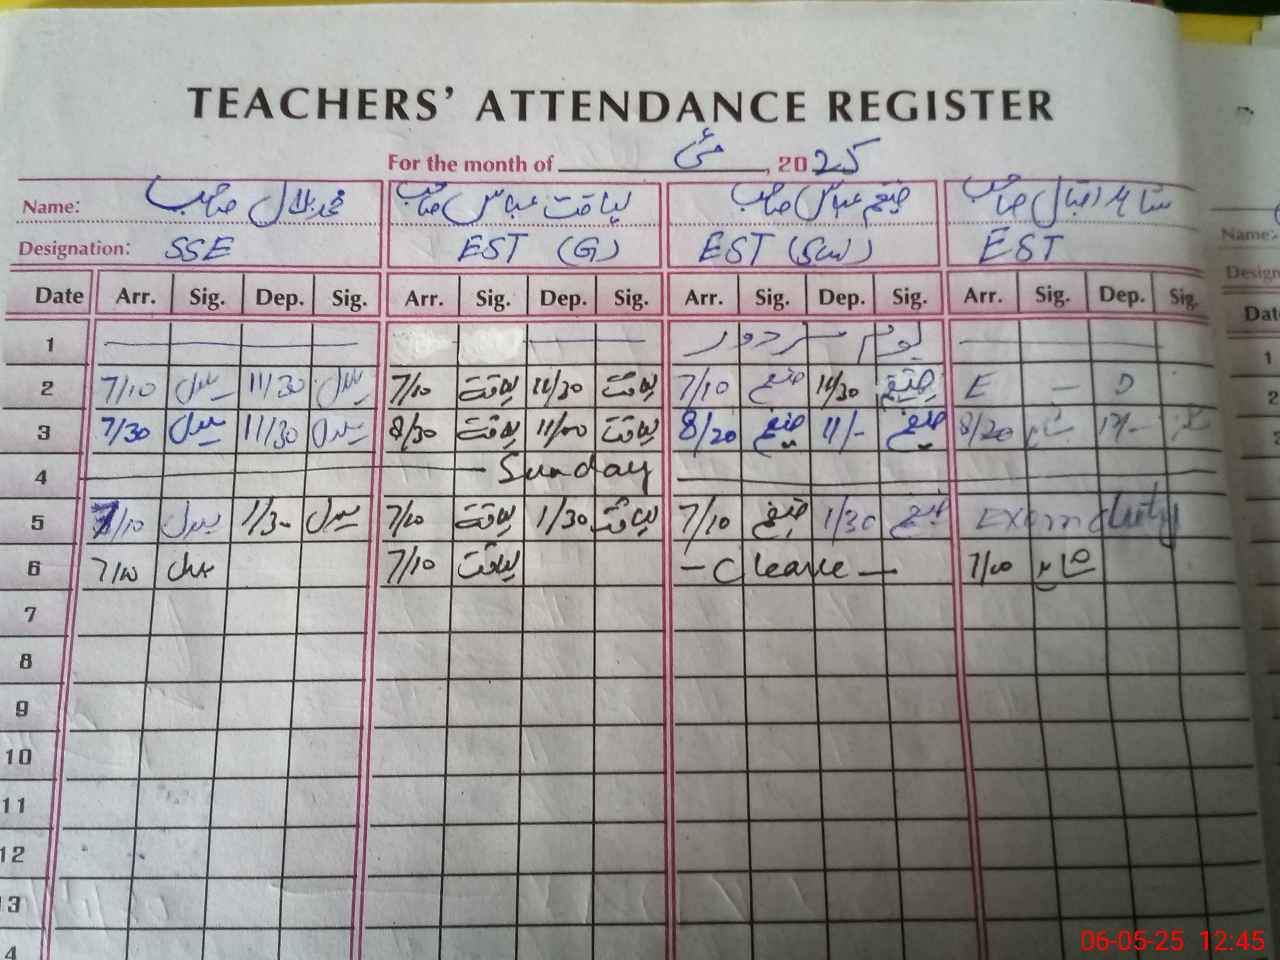 TEACHERS' ATTENDANCE REGISTER
For the month of مئی, 2025
Name: محمد بلال صاحب لیاقت عباس صاحب صاحب شاہد اقبال صاحب Name:
Designation: SSE EST (G) EST (Sci) EST
Date Arr. Sig. Dep. Sig. Arr. Sig. Dep. Sig. Arr. Sig. Dep. Sig. Arr. Sig. Dep. Sig.
1 یوم مزدور 1
2 7/10 11/30 7/10 لیاقت 11/30 لیاقت 7/10 11/30 E — D 2
3 7/30 11/30 8/30 لیاقت 11/00 لیاقت 8/20 11/- 8/20
4 Sunday
5 7/10 1/30 7/10 لیاقت 1/30 لیاقت 7/10 1/30 Exam duty
6 7/10 7/10 لیاقت - C leave - 7/10 شاہد
7
8
9
10
11
12
13
06-05-25 12:45